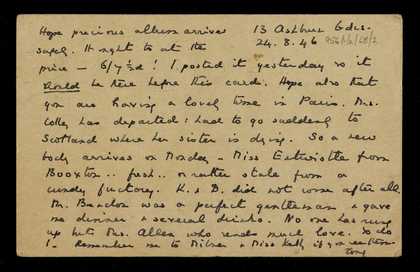 Hope precious album arrives 13 Ashbur Gdns.
safely. It ought to at the 24.8.46
price — 6/7½d! I posted it yesterday so it
should be there before this card. Hope also that
you are having a lovely time in Paris. Mrs.
Colley has departed: had to go suddenly to
Scotland where her sister is dying. So a new
body arrives on Monday - Miss Entwistle from
.. fresh.. or rather stale from a
candy factory. K. & D. did not come after all.
Mr. was a perfect gentleman & gave
me dinner & several drinks. No one has rung
up but Mrs. Allen who sends much love. So do
I. Remember me to Milner & Miss Kelly if you see them
Tony